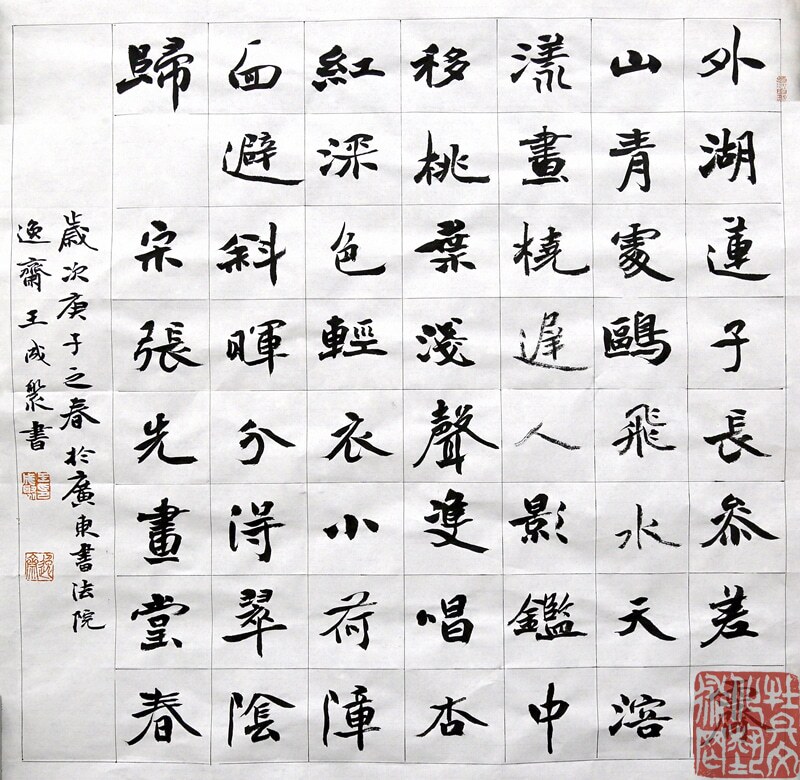 外湖蓮子長參差霽
山青處鷗飛水天溶
漾畫橈遲人影鑑中
移桃葉淺聲雙唱杏
紅深色輕衣小荷障
面避斜暉分得翠陰
歸 宋張先畫堂春
歲次庚子之春於廣東書法院
逸齋王成聚書